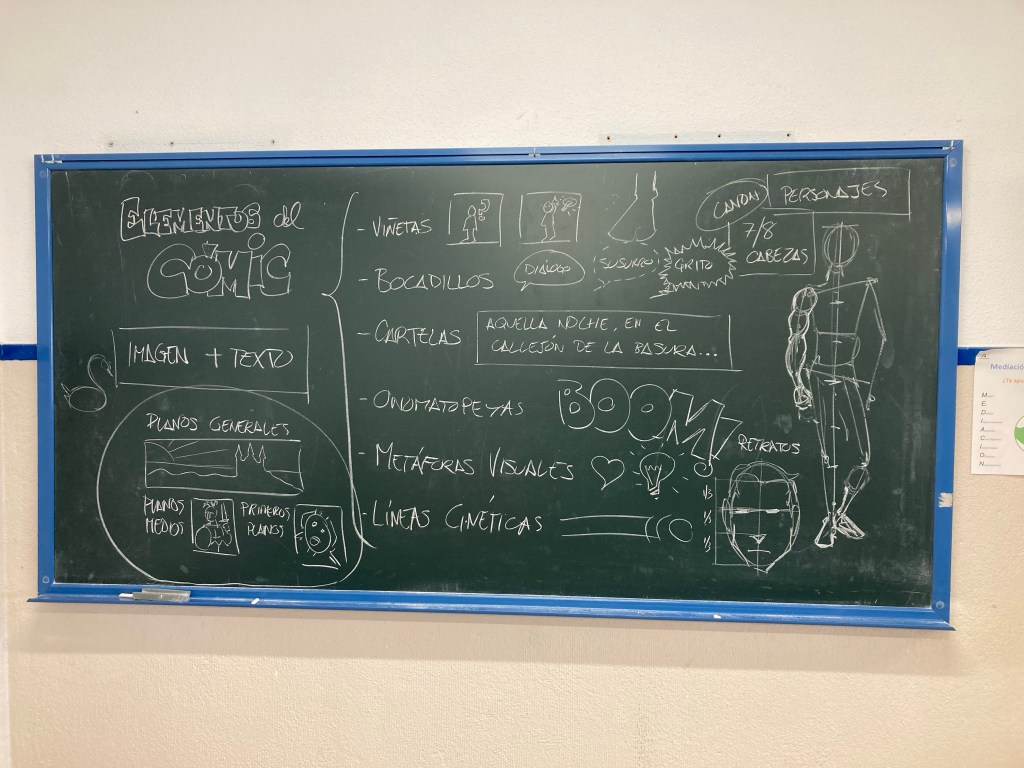 ELEMENTOS del
CÓMIC
IMAGEN + TEXTO
PLANOS GENERALES
PLANOS
MEDIOS
PRIMEROS
PLANOS
- VIÑETAS
- BOCADILLOS
DIÁLOGO
SUSURRO
GRITO
- CARTELAS
AQUELLA NOCHE, EN EL
CALLEJÓN DE LA BASURA...
- ONOMATOPEYAS
BOOM!
- METÁFORAS VISUALES
- LÍNEAS CINÉTICAS
CANON
PERSONAJES
7/8
CABEZAS
RETRATOS
1/3
1/3
1/3
Mediació
M
E
D
I
A
C
I
O
N